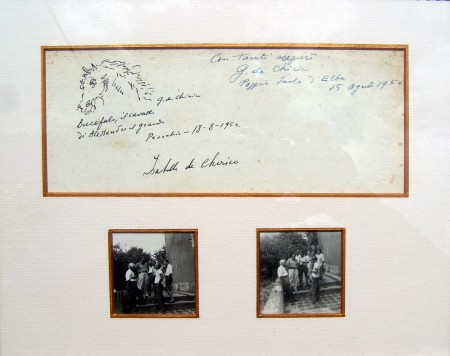 Con tanti auguri
G. de Chirico
Poggio Isola d'Elba
15 Agosto 195
g. de chirico
Bucefalo, il cavallo
di Alessandro il grande
Procchio - 18-8-195
Isabella de Chirico